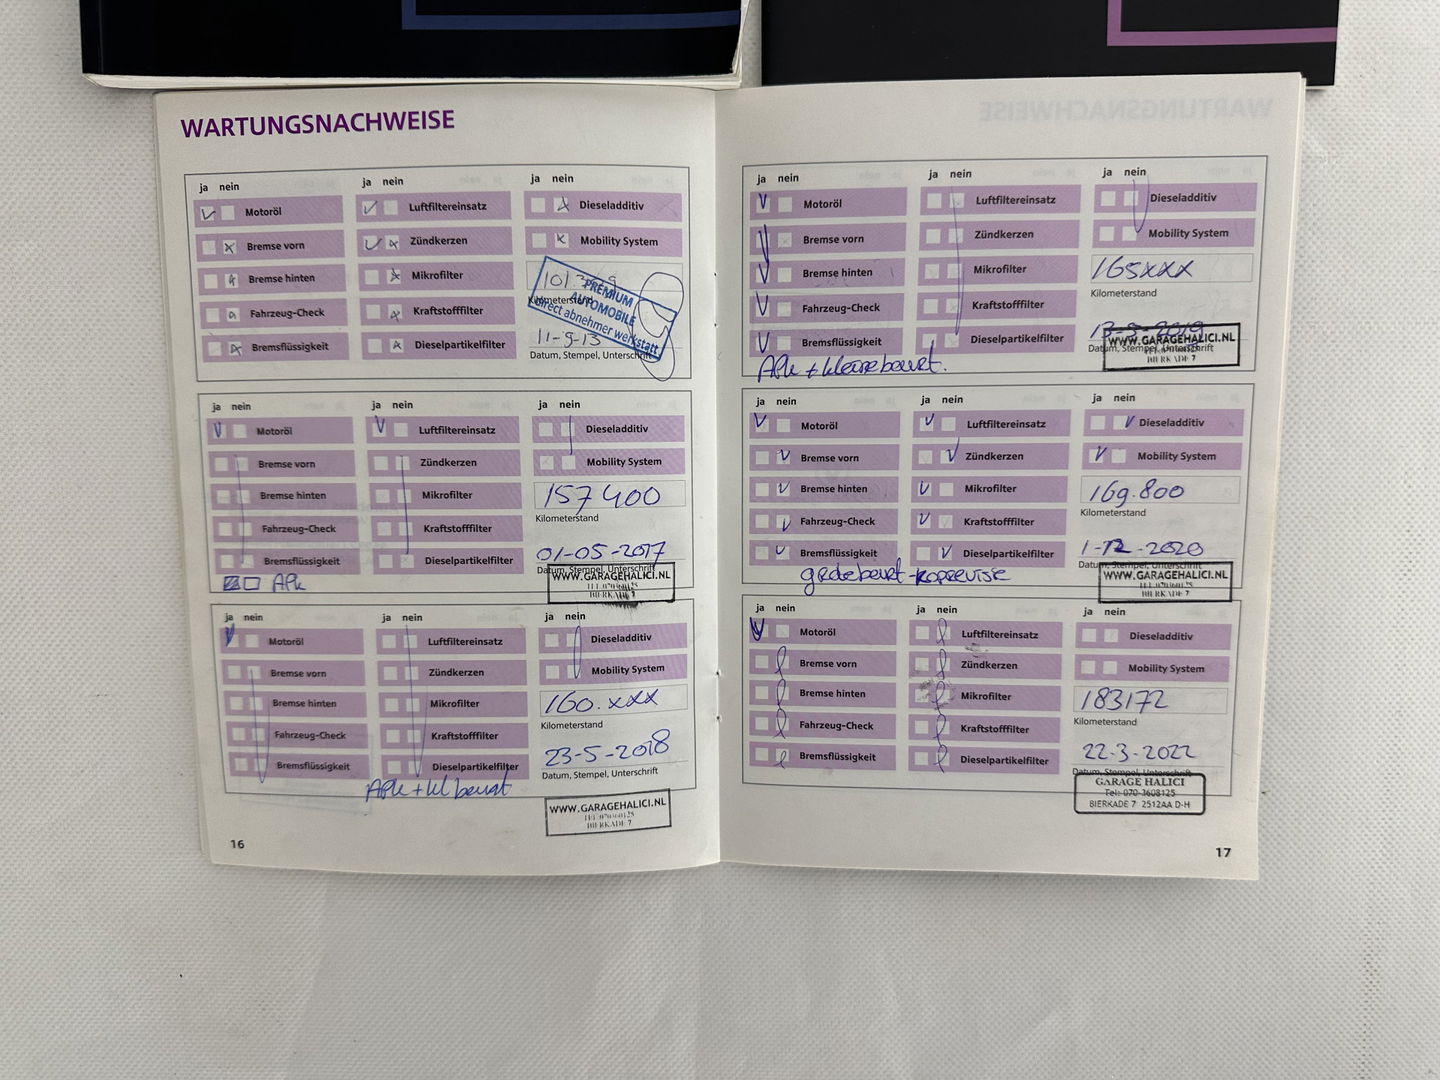 WARTUNGSNACHWEISE
ja nein
Motoröl
Bremse vorn
Bremse hinten
Fahrzeug-Check
Bremsflüssigkeit
ja nein
Luftfiltereinsatz
Zündkerzen
Mikrofilter
Kraftstofffilter
Dieselpartikelfilter
ja nein
Dieseladditiv
Mobility System
Kilometerstand
PREMIUM
AUTOMOBILE
direct abnehmer werkstatt
11-9-13
Datum, Stempel, Unterschrift
ja nein
Motoröl
Bremse vorn
Bremse hinten
Fahrzeug-Check
Bremsflüssigkeit
APK
ja nein
Luftfiltereinsatz
Zündkerzen
Mikrofilter
Kraftstofffilter
Dieselpartikelfilter
ja nein
Dieseladditiv
Mobility System
157400
Kilometerstand
01-05-2017
Datum, Stempel, Unterschrift
WWW.GARAGEHALICI.NL
BIERKADE 7
ja nein
Motoröl
Bremse vorn
Bremse hinten
Fahrzeug-Check
Bremsflüssigkeit
ja nein
Luftfiltereinsatz
Zündkerzen
Mikrofilter
Kraftstofffilter
Dieselpartikelfilter
APK + kl beurt
ja nein
Dieseladditiv
Mobility System
160.xxx
Kilometerstand
23-5-2018
Datum, Stempel, Unterschrift
WWW.GARAGEHALICI.NL
BIERKADE 7
16
ja nein
Motoröl
Bremse vorn
Bremse hinten
Fahrzeug-Check
Bremsflüssigkeit
APK + kleine beurt.
ja nein
Luftfiltereinsatz
Zündkerzen
Mikrofilter
Kraftstofffilter
Dieselpartikelfilter
ja nein
Dieseladditiv
Mobility System
165xxx
Kilometerstand
13-5-2019
Datum, Stempel, Unterschrift
WWW.GARAGEHALICI.NL
BIERKADE 7
ja nein
Motoröl
Bremse vorn
Bremse hinten
Fahrzeug-Check
Bremsflüssigkeit
ja nein
Luftfiltereinsatz
Zündkerzen
Mikrofilter
Kraftstofffilter
Dieselpartikelfilter
grote beurt - koprevisie
ja nein
Dieseladditiv
Mobility System
169.800
Kilometerstand
1-12-2020
Datum, Stempel, Unterschrift
WWW.GARAGEHALICI.NL
BIERKADE 7
ja nein
Motoröl
Bremse vorn
Bremse hinten
Fahrzeug-Check
Bremsflüssigkeit
ja nein
Luftfiltereinsatz
Zündkerzen
Mikrofilter
Kraftstofffilter
Dieselpartikelfilter
ja nein
Dieseladditiv
Mobility System
183172
Kilometerstand
22-3-2022
Datum, Stempel, Unterschrift
GARAGE HALICI
Tel: 070-3608125
BIERKADE 7 2512AA D-H
17